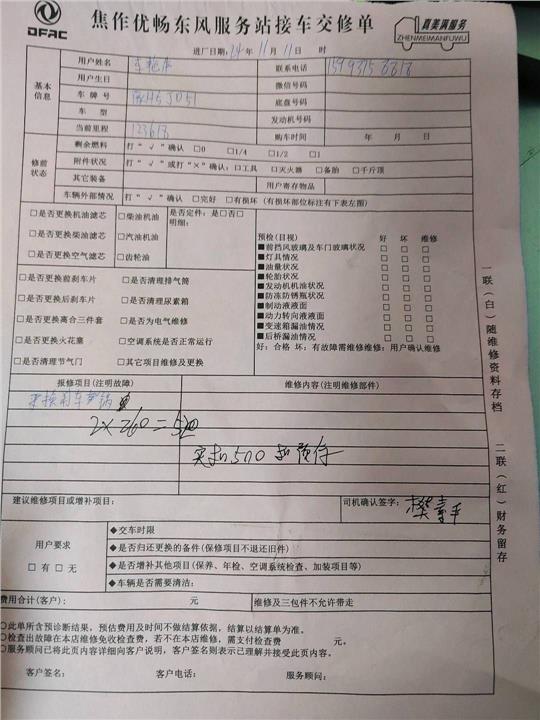 DFAC
焦作优畅东风服务站接车交修单
真美满服务
ZHENMEIMANFUWU
进厂日期: 24年 11月 11日 时
基本信息
用户姓名
联系电话
用户生日
微信号码
车牌号
底盘号码
车型
发动机号码
当前里程 123618
购车时间 年 月 日
修前状态
剩余燃料 打“√”确认 □0 □1/4 □1/2 □1
附件状况 打“√”或打“×”确认:□工具 □灭火器 □备胎 □千斤顶
其它装备
用户寄存物品
车辆外部情况 打“√”确认 □完好 □有损坏(有损坏部位标注有下表左图)
□是否更换机油滤芯 □柴油机油
□是否更换柴油滤芯 □汽油机油
□是否更换空气滤芯 □齿轮油
是否定件:是□否□
明细:
□是否更换前刹车片 □是否清理排气筒
□是否更换后刹车片 □是否清理尿素箱
□是否更换离合三件套 □是否为电气维修
□是否更换火花塞 □空调系统是否正常运行
□是否清理节气门 □其它项目维修及更换
预检(目视) 好 坏 维修
■前挡风玻璃及车门玻璃状况 □ □ □
■灯具情况 □ □ □
■油量状况 □ □ □
■轮胎状况 □ □ □
■发动机机油状况 □ □ □
■防冻防锈瓶状况 □ □ □
■制动液液面 □ □ □
■动力转向液液面 □ □ □
■变速箱漏油情况 □ □ □
■后桥漏油情况 □ □ □
好:合格 坏:有故障需维修维修:用户确认维修
报修项目(注明故障)
维修内容(注明维修部件)
2×260=520
实扣500 扣预存
建议维修项目或增补项目:
司机确认签字:
用户要求
□有 □无
◆交车时限
◆是否归还更换的备件(保修项目不退还旧件)
◆是否增补其他项目(保养、年检、空调系统检查、加装项目等)
◆车辆是否需要清洁:
费用合计(客户): 元
维修及三包件不允许带走
◇此单所含预诊断结果,预估费用及时间不做结算依据,结算以结算单为准。
◇检查出故障在本店维修免收检查费,若不在本店维修,需支付检查费 元。
◇服务顾问已将此页内容详细向客户说明,客户签名则表示已理解并接受此页内容。
客户签名: 客户电话: 服务顾问:
一联(白)随维修资料存档
二联(红)财务留存